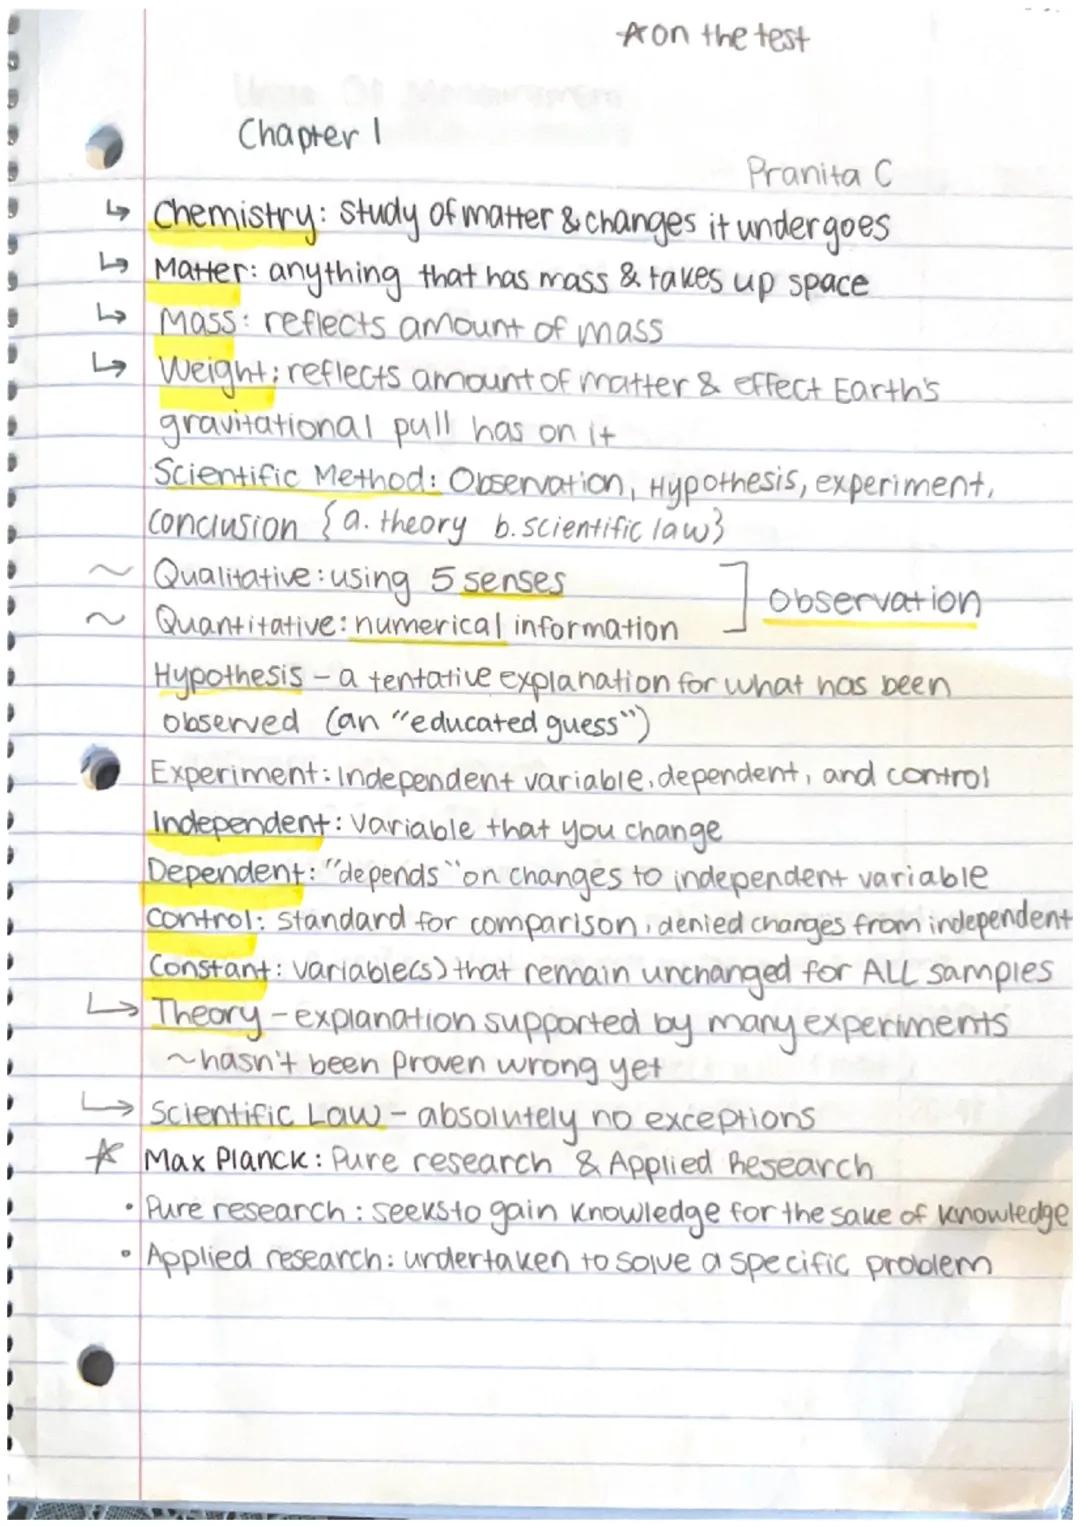 ☆on the test
Chapter 1
Pranita C
↳ Chemistry: Study of matter & changes it undergoes
↳ Matter: anything that has mass & takes up space
↳ Mass: reflects amount of mass
↳ Weight: reflects amount of matter & effect Earth's
gravitational pull has on it
Scientific Method: Observation, Hypothesis, experiment,
conclusion {a. theory b. scientific law}
~ Qualitative: using 5 senses
~ Quantitative: numerical information
] Observation
Hypothesis - a tentative explanation for what has been
observed (an "educated guess")
Experiment: Independent variable, dependent, and control
Independent: Variable that you change
Dependent: "depends" on changes to independent variable
Control: Standard for comparison, denied changes from independent
Constant: Variable(s) that remain unchanged for ALL samples
↳ Theory - explanation supported by many experiments
~hasn't been proven wrong yet
↳ Scientific Law - absolutely no exceptions
☆ Max Planck: Pure research & Applied Research
• Pure research: seeks to gain knowledge for the sake of knowledge
• Applied research: undertaken to solve a specific problem